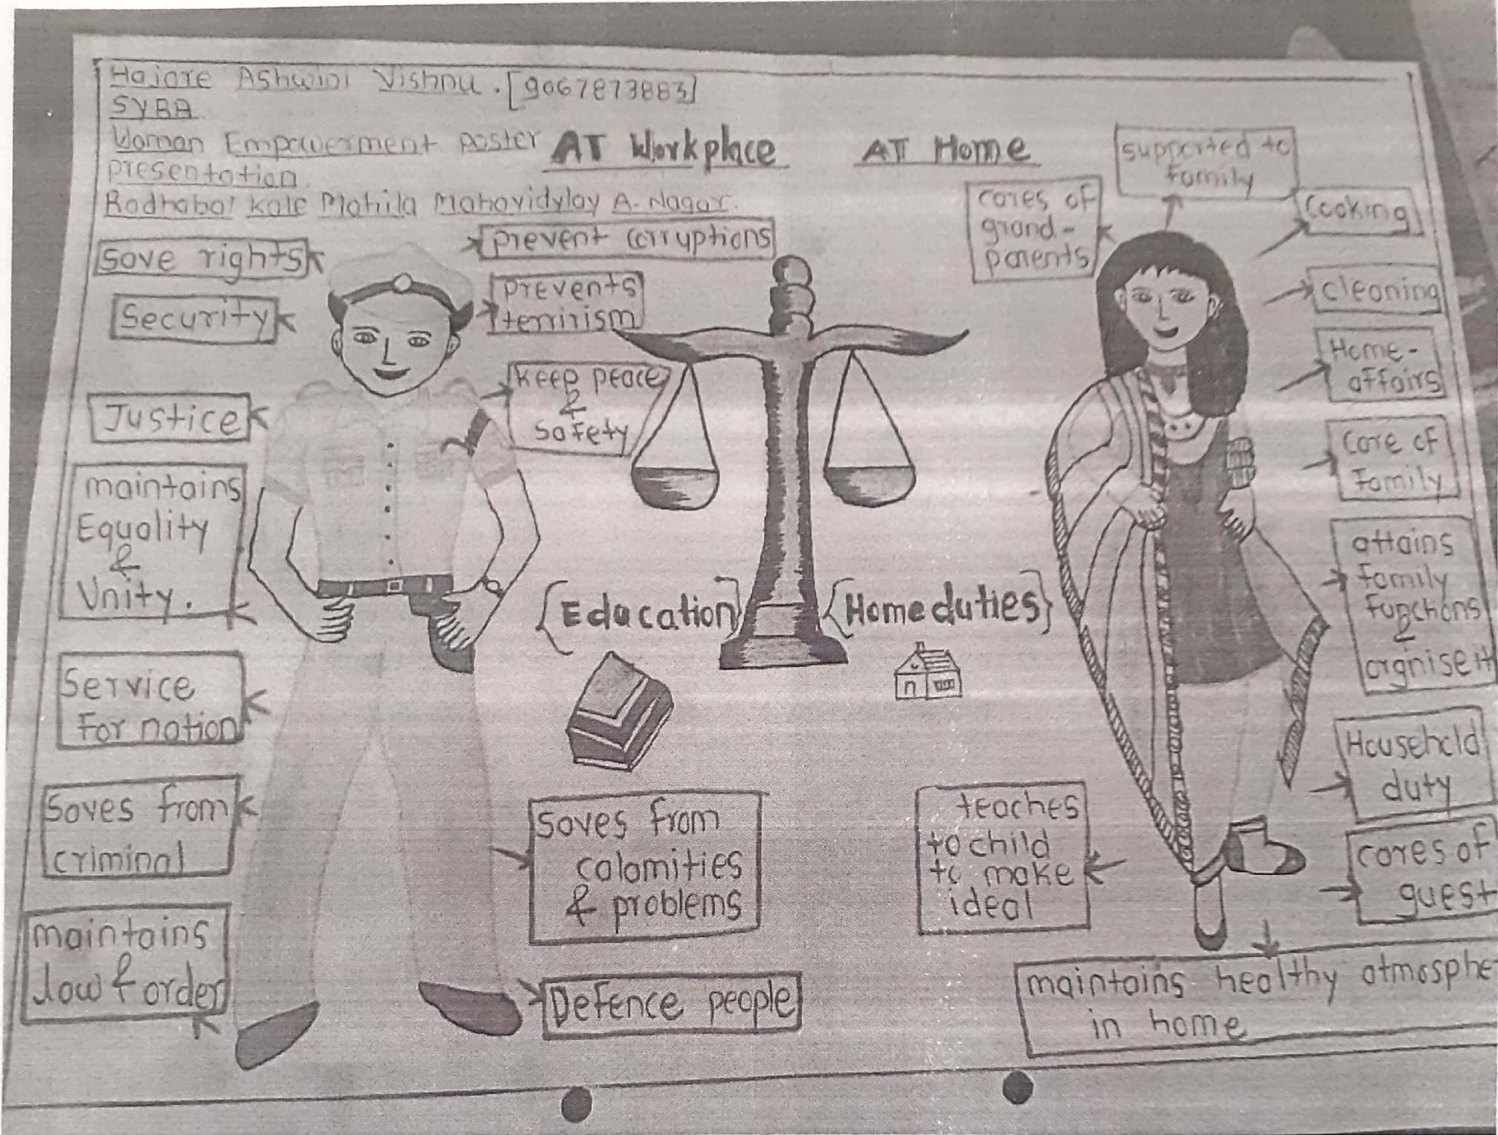 Hajare Ashwini Vishnu. [9067873883]
SYBA
Woman Empowerment poster
presentation
Radhabai Kale Mahila Mahavidylay A. Nagar.
AT Workplace
AT Home
save rights
Security
Justice
maintains
Equality
&
Unity.
Service
For nation
Saves from
criminal
maintains
law & order
prevent corruptions
prevents
terririsim
Keep peace
&
Safety
{Education}
{Home duties}
Saves from
calamities
& problems
Defence people
supported to
family
cares of
grand-
parents
Cooking
cleaning
Home-
affairs
Care of
Family
attains
family
Functions
&
orgnise it
Household
duty
cares of
guest
teaches
to child
to make
ideal
maintains healthy atmosphe
in home